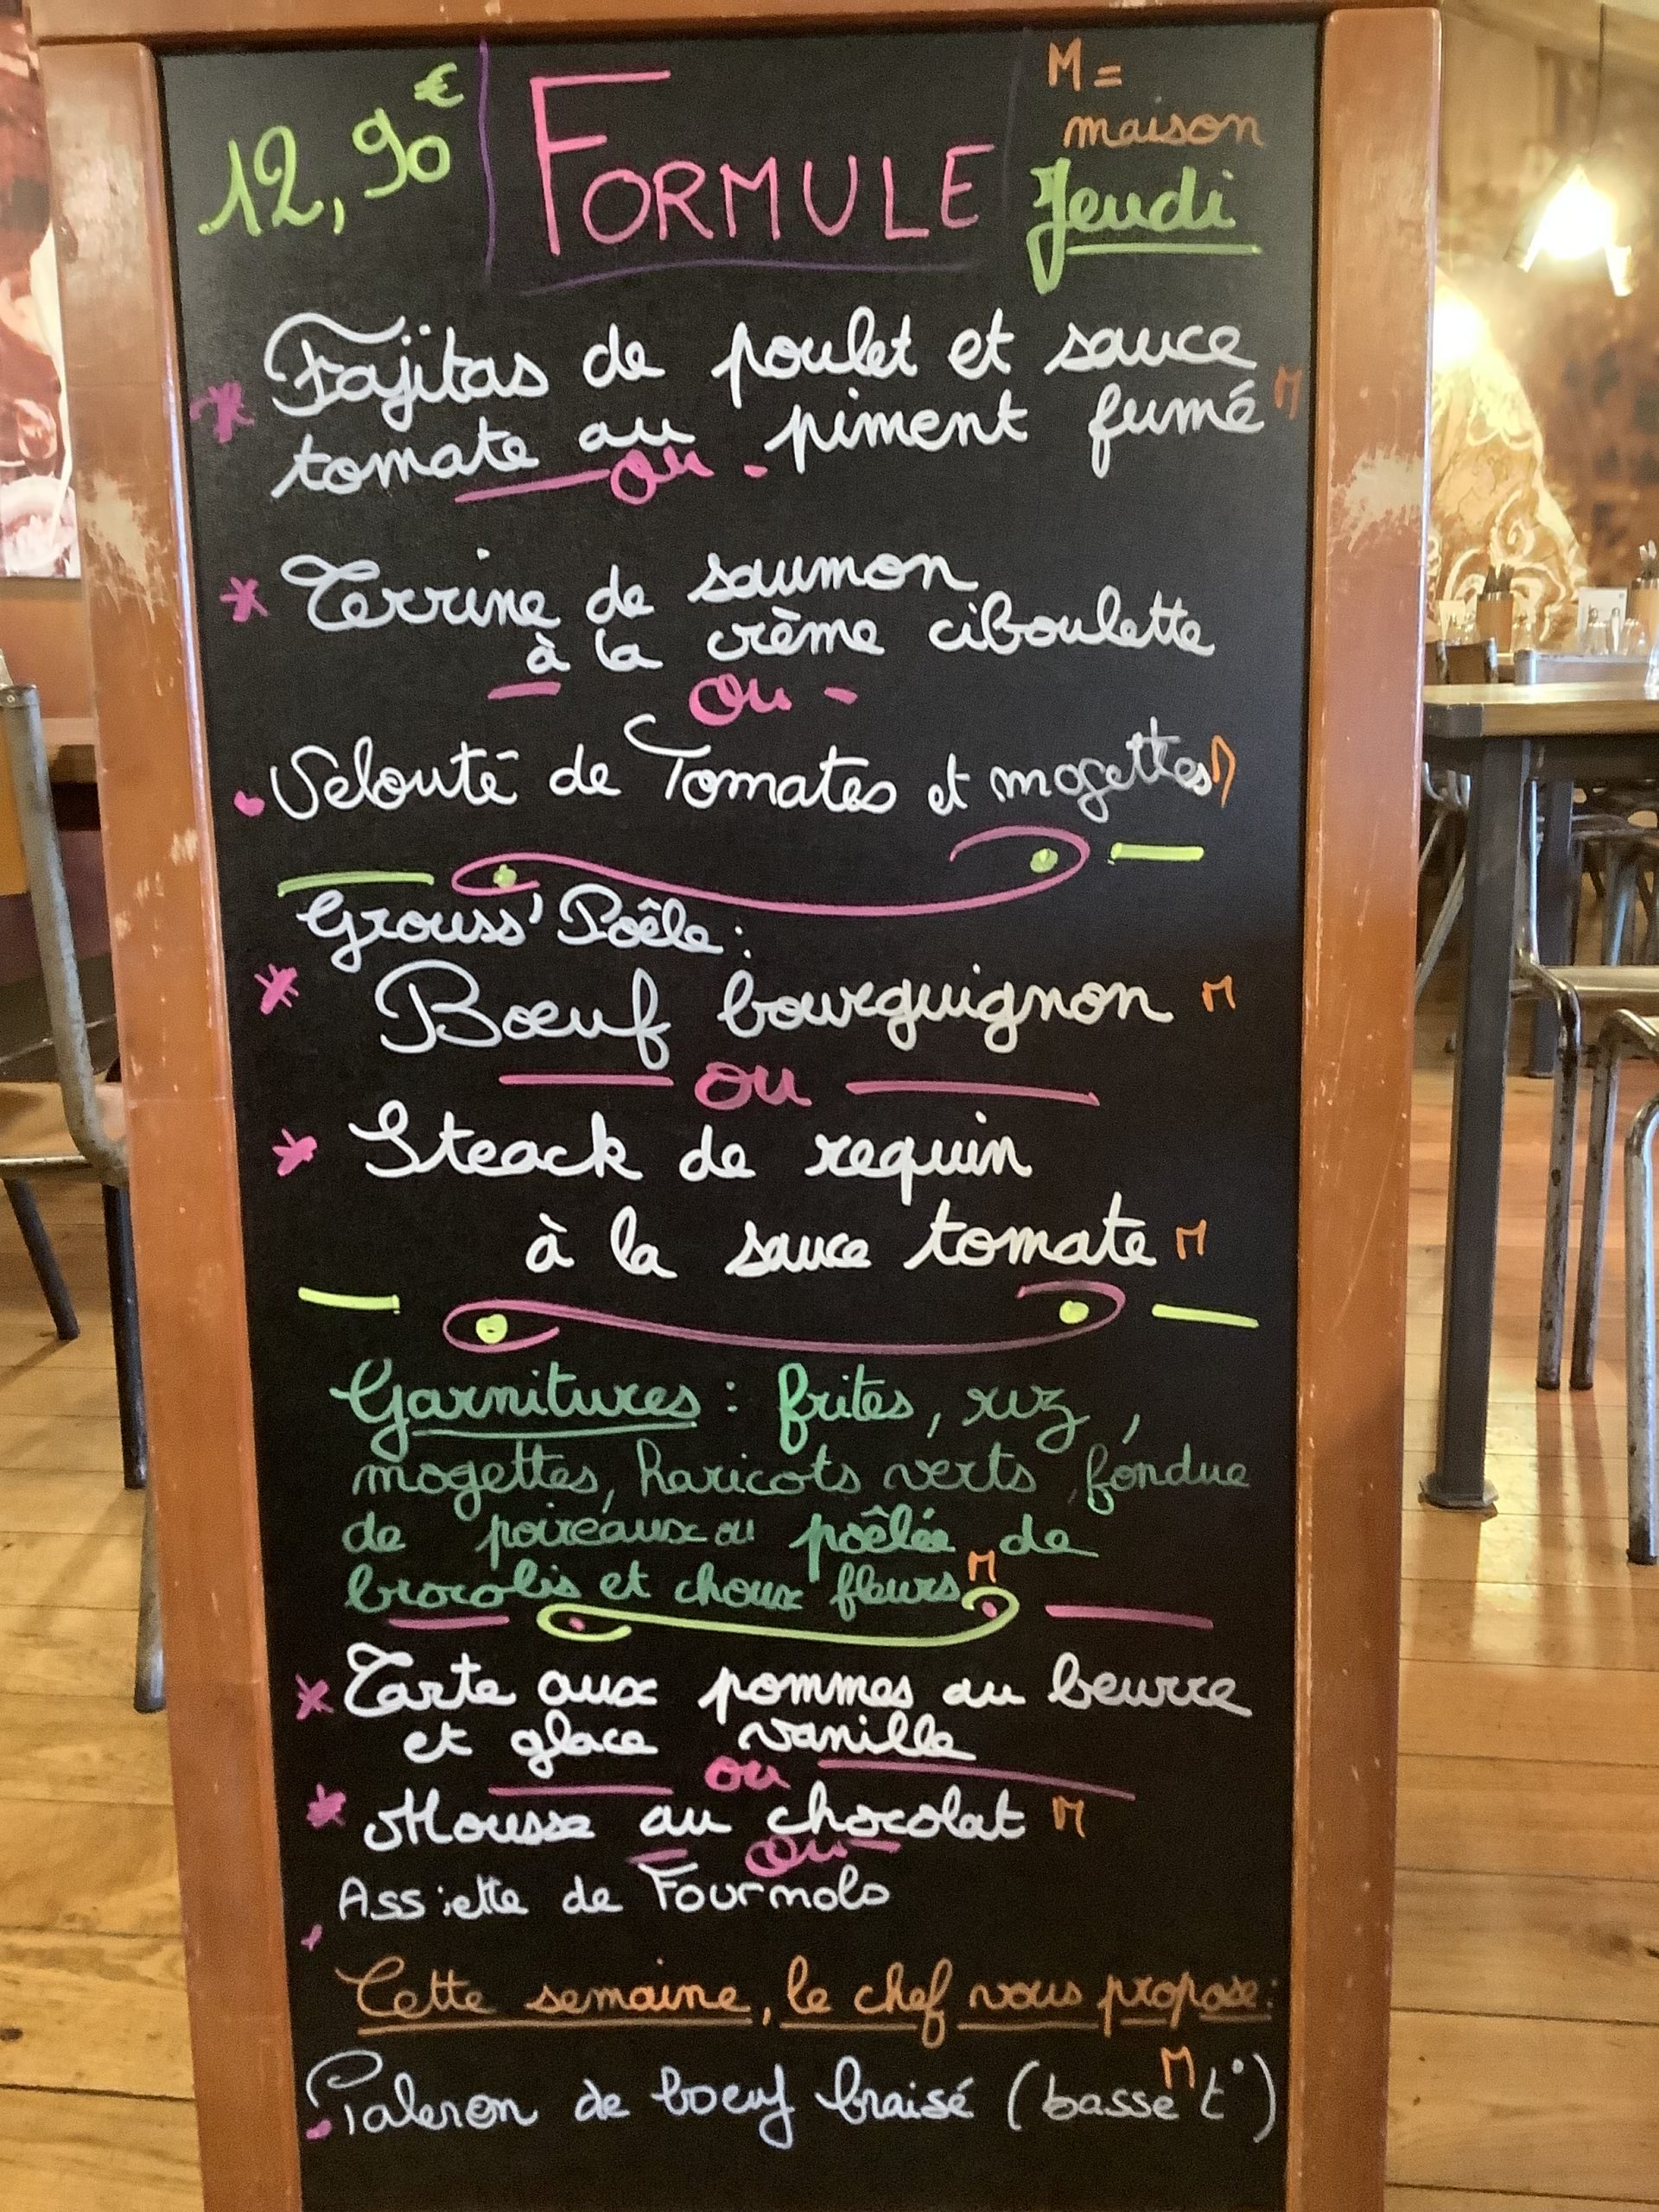 12,90€
FORMULE
M =
maison
Jeudi
Fajitas de poulet et sauce
tomate au piment fumé M
ou
Terrine de saumon
à la crème ciboulette
ou
Velouté de Tomates et mogettes M
Grouss' Poêle :
Bœuf bourguignon M
ou
Steack de requin
à la sauce tomate M
Garnitures : frites, riz,
mogettes, haricots verts, fondue
de poireaux ou poêlée de
brocolis et choux fleurs M
Tarte aux pommes au beurre
et glace vanille
ou
Mousse au chocolat M
ou
Assiette de Fourmols
Cette semaine, le chef vous propose :
Paleron de boeuf braisé (basse t°) M